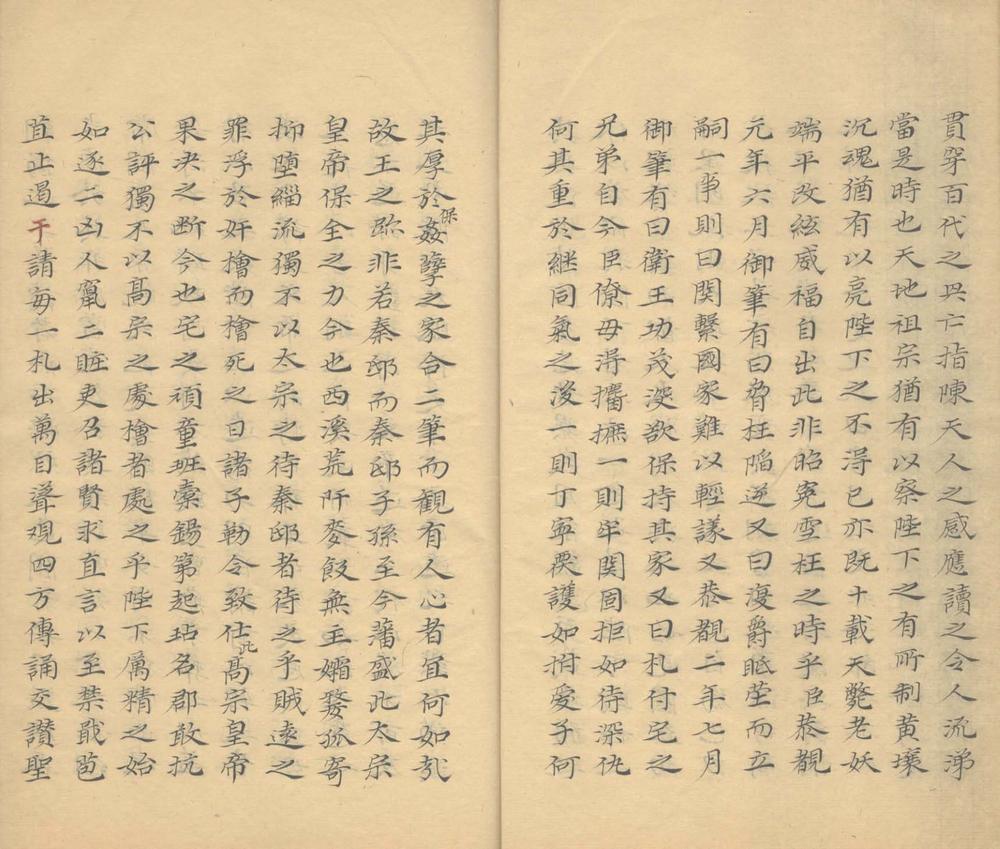 貫穿百代之興亡指陳天人之感應讀之令人流涕
當是時也天地祖宗猶有以察陛下之有所制黃壤
沉魂猶有以亮陛下之不淂已亦既十載天斃老妖
端平改絃威福自出此非昭冤雪枉之時乎臣恭覩
元年六月御筆有曰脅枉陷逆又曰復爵眡塋而立
嗣一事則曰関繫國家難以輕議又恭覩二年七月
御筆有曰衛王功茂深欲保持其家又曰札付宅之
兄弟自今臣僚毋淂攟摭一則牢関固拒如待深仇
何其重於継同氣之後一則丁寧覆護如拊愛子何
其厚於保姦孽之家合二筆而観有人心者宜何如哉
故王之跡非若秦邸而秦邸子孫至今蕃盛此太宗
皇帝保全之力今也西溪荒阡麥飯無主孀嫠孤寄
抑墮緇流獨不以太宗之待秦邸者待之乎賊遠之
罪浮於奸檜而檜死之日諸子勒令致仕此髙宗皇帝
果决之断今也宅之頑童班槖錫第起玷名郡敢抗
公評獨不以髙宗之處檜者處之乎陛下厲精之始
如逐二凶人竄二賍吏召諸賢求直言以至禁戢苞
苴止遏干請每一札出萬目聳观四方傳誦交讃聖